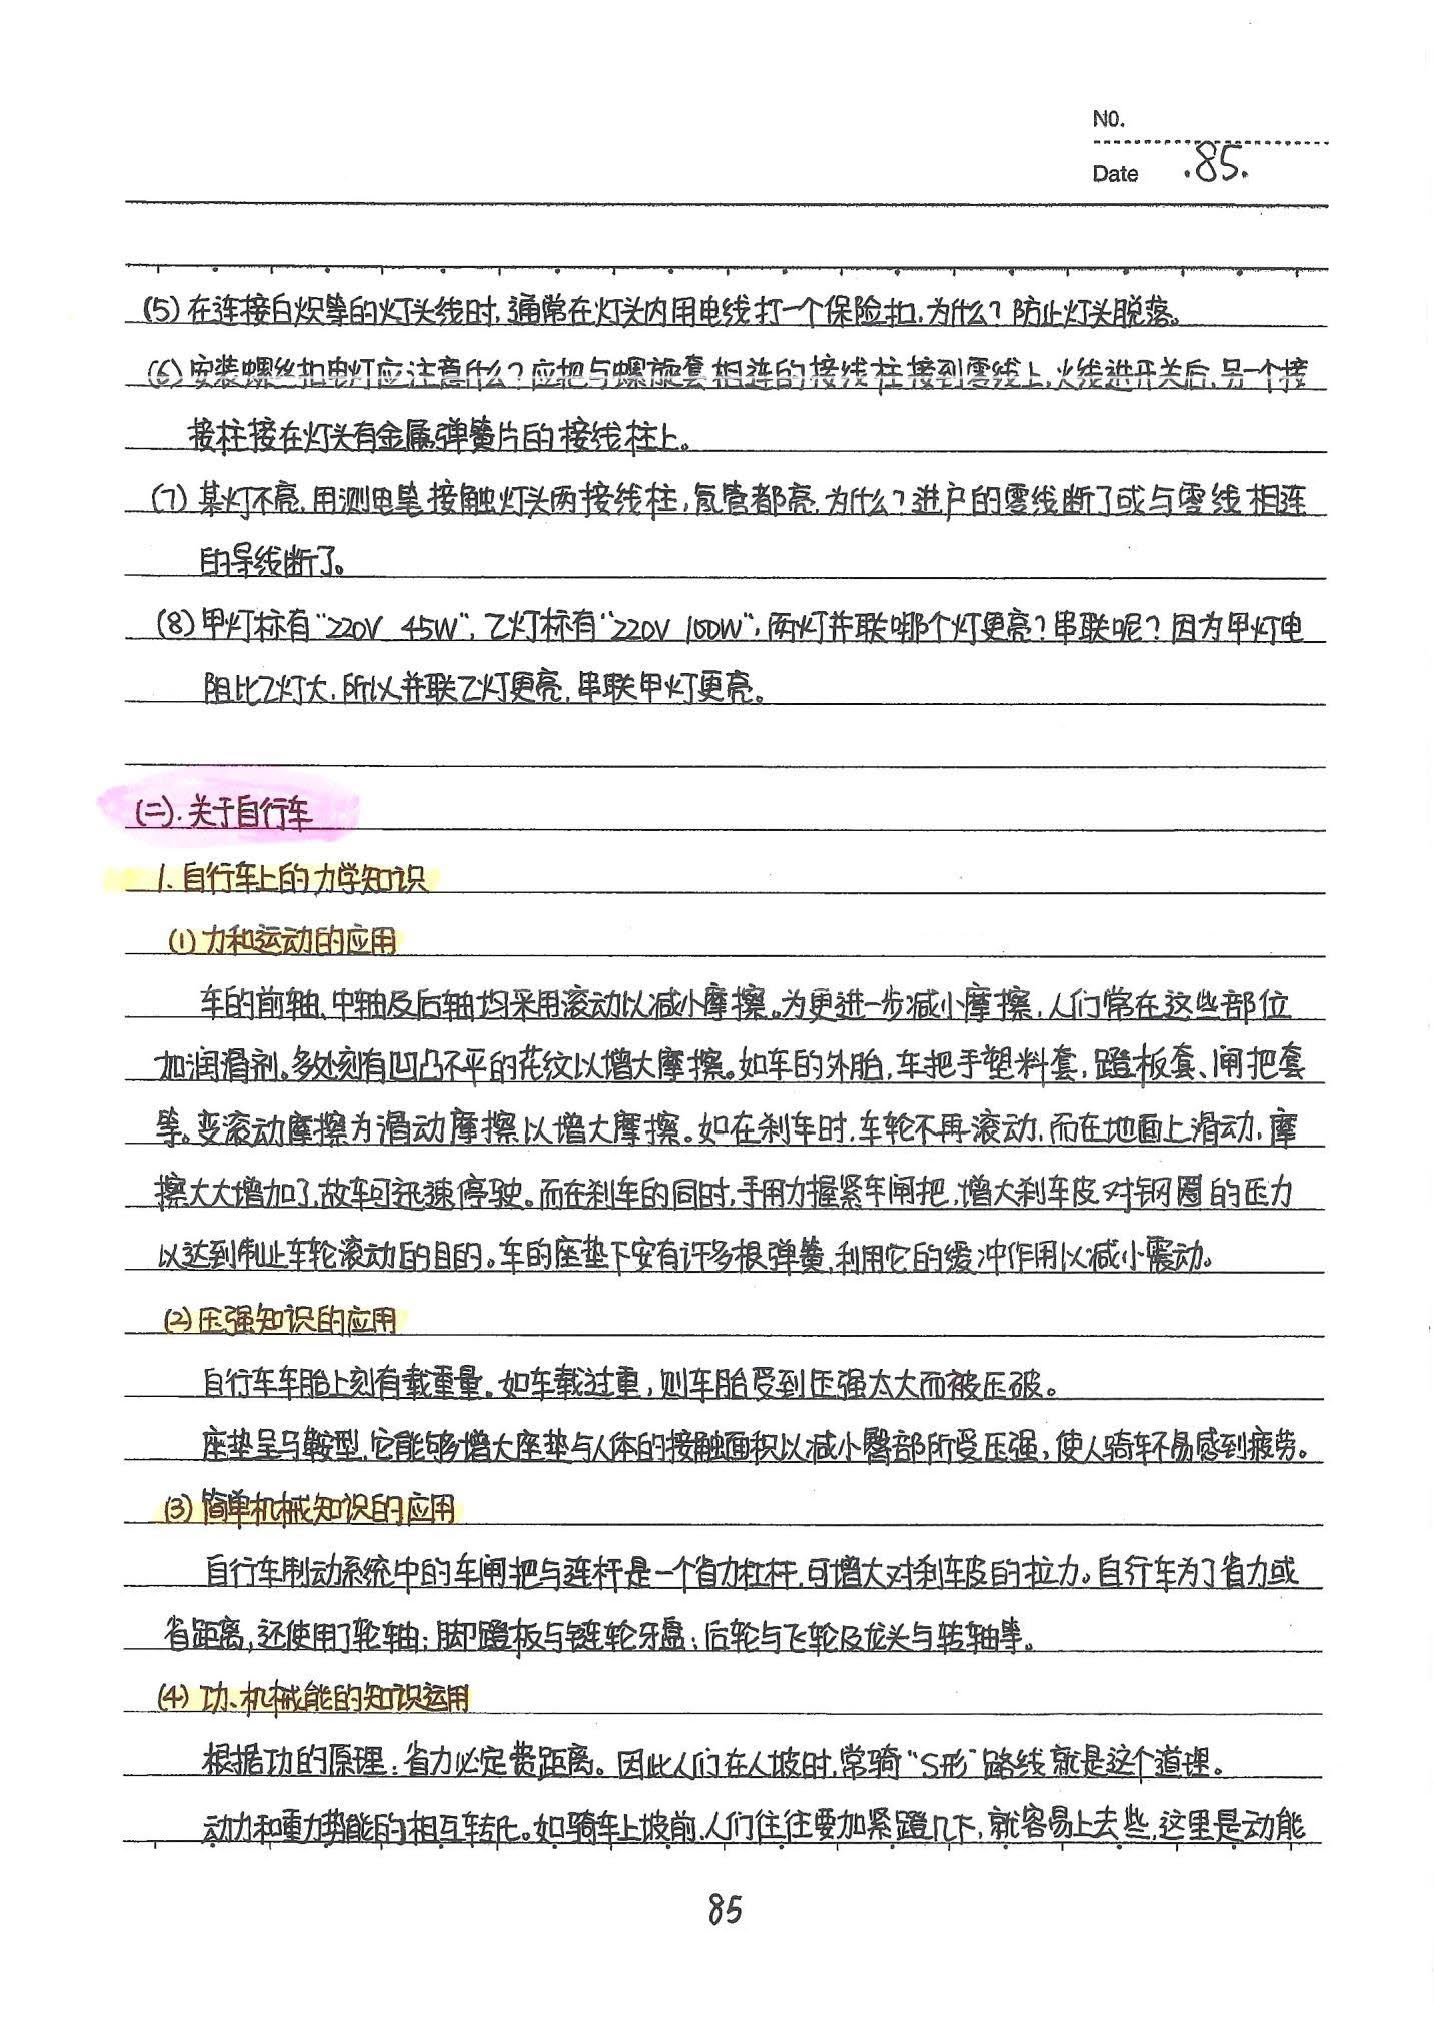 NO.
Date .85.
(5) 在连接白炽等的灯头线时,通常在灯头内用电线打一个保险扣,为什么?防止灯头脱落。
(6) 安装螺丝扣电灯应注意什么?应把与螺旋套相连的接线柱接到零线上,火线进开关后,另一个接
接柱接在灯头有金属弹簧片的接线柱上。
(7) 某灯不亮,用测电笔接触灯头两接线柱,氖管都亮,为什么?进户的零线断了或与零线相连
的导线断了。
(8) 甲灯标有“220V 45W”,乙灯标有“220V 100W”,两灯并联哪个灯更亮?串联呢?因为甲灯电
阻比乙灯大,所以并联乙灯更亮,串联甲灯更亮。
(二).关于自行车
1.自行车上的力学知识
(1) 力和运动的应用
车的前轴、中轴及后轴均采用滚动以减小摩擦。为更进一步减小摩擦,人们常在这些部位
加润滑剂。多处刻有凹凸不平的花纹以增大摩擦。如车的外胎,车把手塑料套,蹬板套、闸把套
等。变滚动摩擦为滑动摩擦以增大摩擦。如在刹车时,车轮不再滚动,而在地面上滑动,摩
擦大大增加了,故车可迅速停驶。而在刹车的同时,手用力握紧车闸把,增大刹车皮对钢圈的压力
以达到制止车轮滚动的目的。车的座垫下安有许多根弹簧,利用它的缓冲作用以减小震动。
(2) 压强知识的应用
自行车车胎上刻有载重量。如车载过重,则车胎受到压强太大而被压破。
座垫呈马鞍型,它能够增大座垫与人体的接触面积以减小臀部所受压强,使人骑车不易感到疲劳。
(3) 简单机械知识的应用
自行车制动系统中的车闸把与连杆是一个省力杠杆,可增大对刹车皮的拉力。自行车为了省力或
省距离,还使用了轮轴:脚蹬板与链轮牙盘;后轮与飞轮及龙头与转轴等。
(4) 功、机械能的知识运用
根据功的原理:省力必定费距离。因此人们在人坡时,常骑“S形”路线就是这个道理。
动力和重力势能的相互转化。如骑车上坡前,人们往往要加紧蹬几下,就容易上去些,这里是动能
85